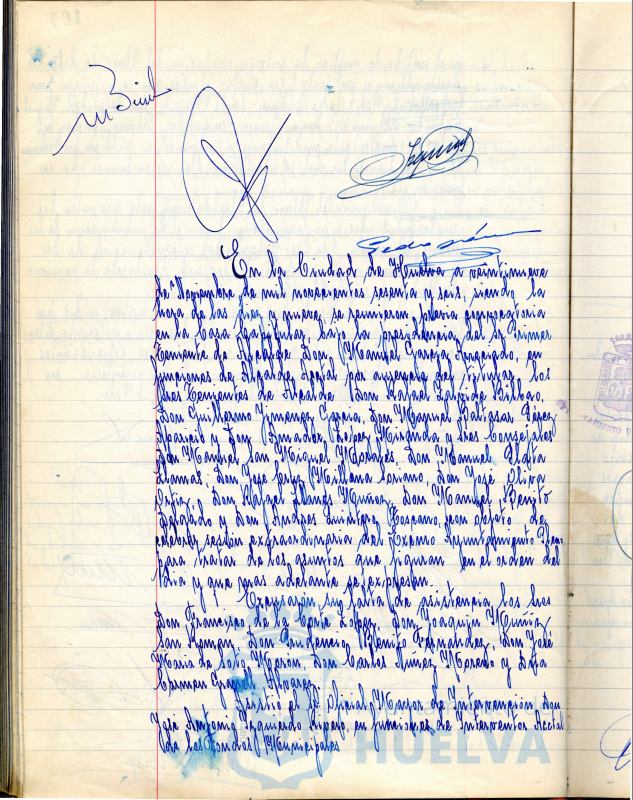 En la Ciudad de Huelva a veintinueve
de Noviembre de mil novecientos sesenta y seis, siendo la
hora de las diez y nueve, se reunieron previa convocatoria
en la Casa Capitular, bajo la presidencia del Sr. Primer
Teniente de Alcalde Don Manuel García, en
funciones de Alcalde Acctal por ausencia del titular, los
Sres Tenientes de Alcalde Don Rafael Bilbao,
Don Guillermo Jimenez García, Don Manuel Baltasar Pérez
Aparicio y Don Amador López Miranda y Sres Concejales
Don Manuel San Miguel, Don Manuel
Llamas, Don José Cruz Millana Soriano, Don José Oliva
Ortiz, Don Rafael Llanes Muñoz, Don Manuel Benito
Delgado y Don Andres Quintero Toscano, con objeto de
celebrar sesión extraordinaria del Excmo Ayuntamiento Pleno
para tratar de los asuntos que figuran en el orden del
día y que mas adelante se expresan.
Excusaron su falta de asistencia los Sres
Don Francisco de la Corte Lopez, Don Joaquin Muñiz
San Roman, Don Benito Fernandez, Don José
Maria de Soto, Don Carlos Núñez Moreno y Dña
Carmen Alvarez.
Asistió el Sr Oficial Mayor de Intervención Don
José Antonio Izquierdo, en funciones de Interventor Acctal
de los Fondos Municipales
HUELVA